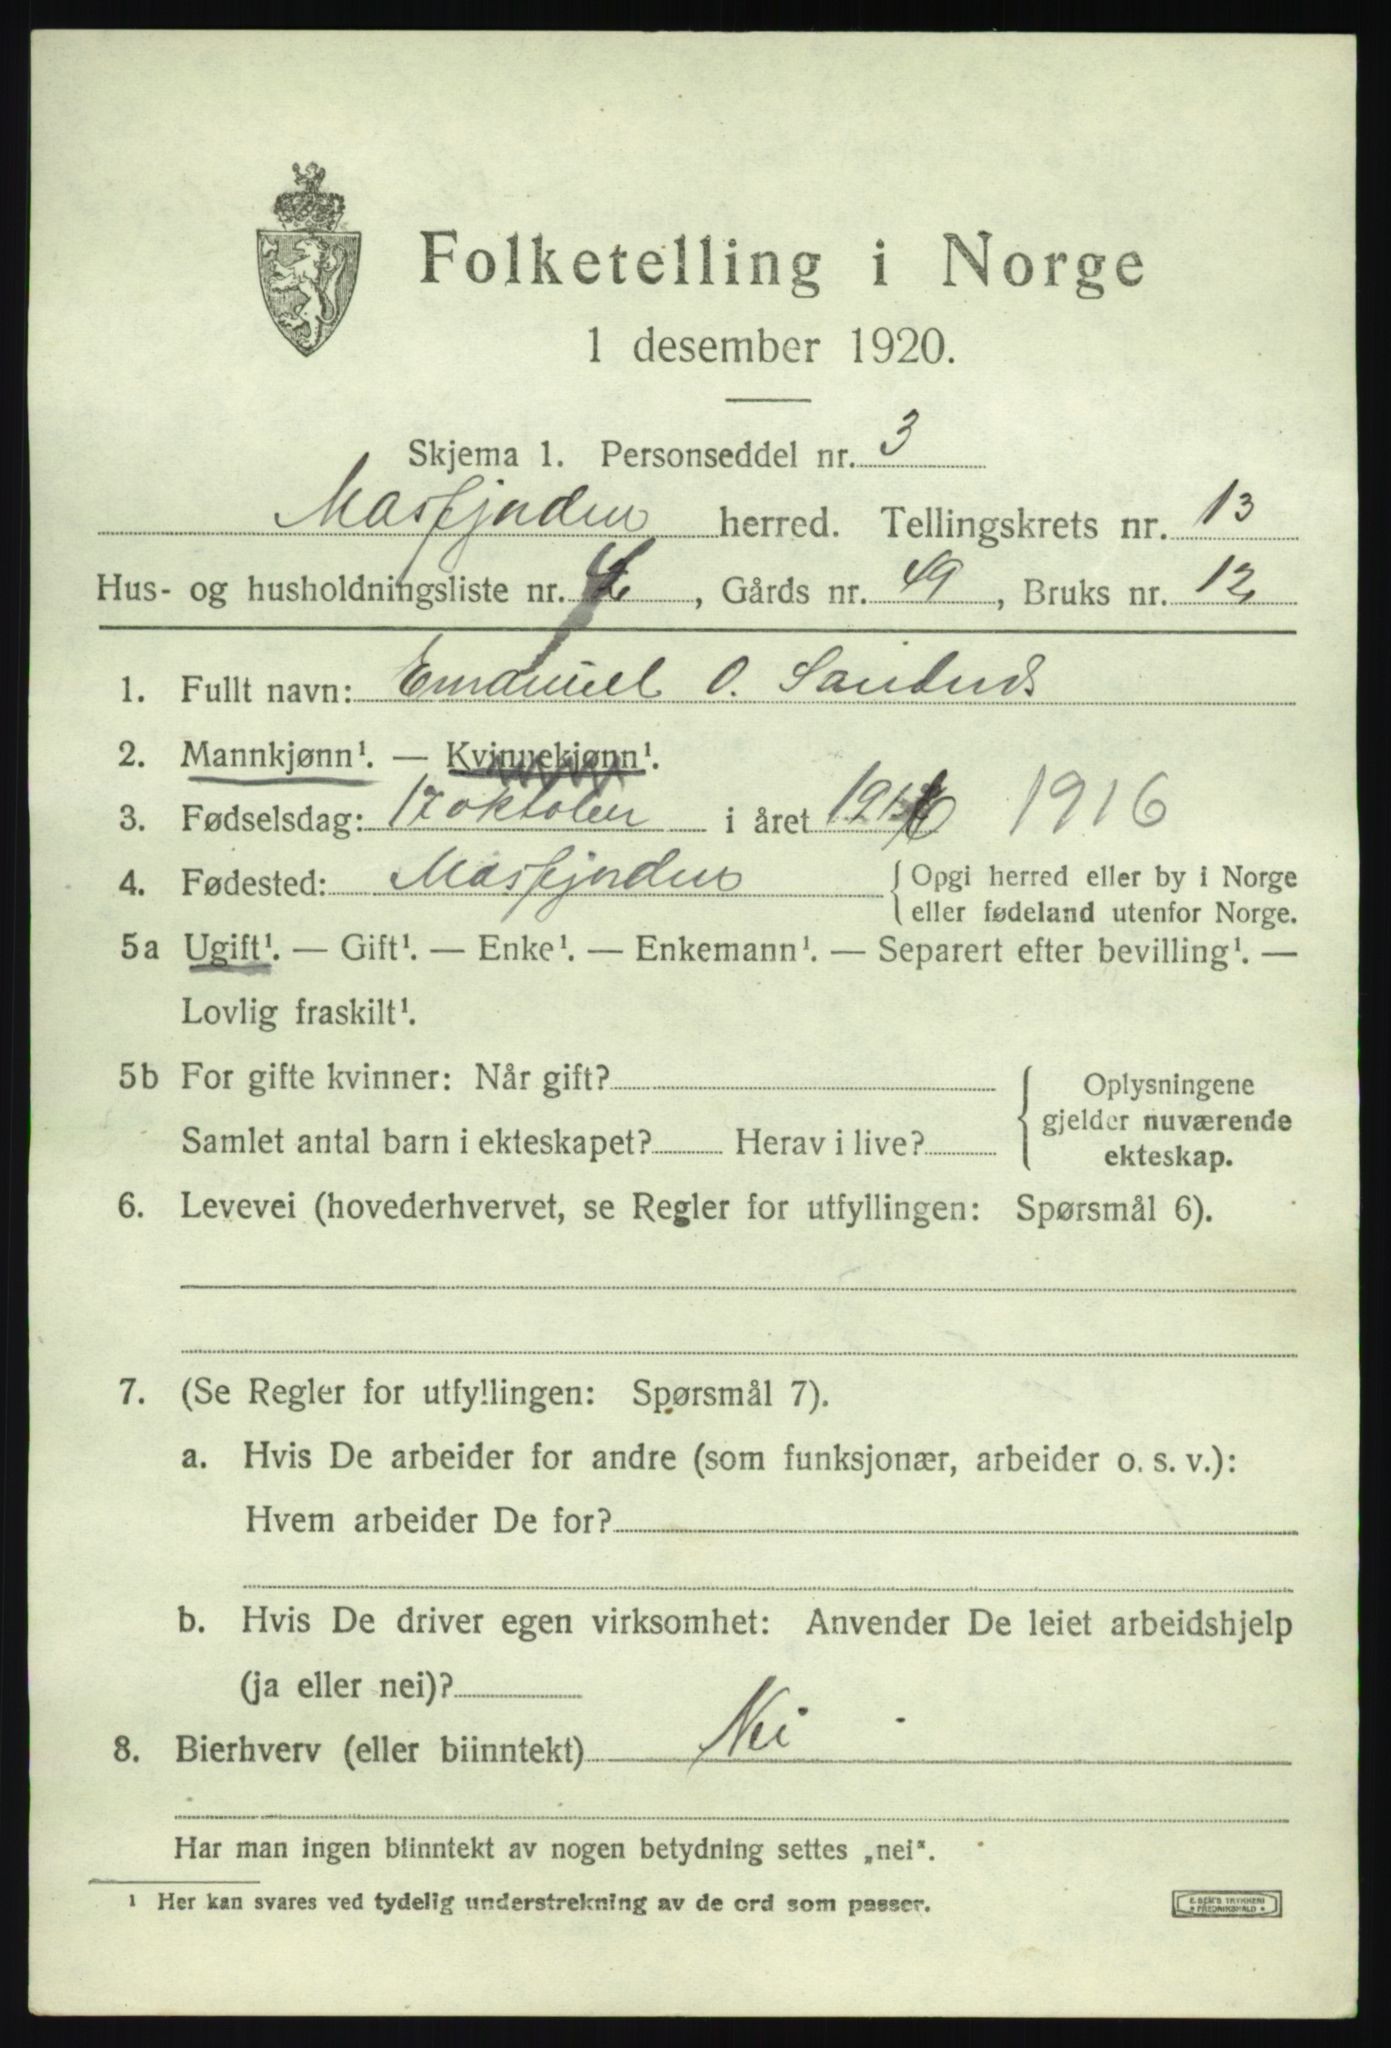 Folketelling i Norge
1 desember 1920.
Skjema 1. Personseddel nr. 3
Masfjorden herred. Tellingskrets nr. 13
Hus- og husholdningsliste nr. 4, Gårds nr. 49, Bruks nr. 12
1. Fullt navn: Emanuel O.
2. Mannkjønn¹. — Kvinnekjønn¹.
3. Fødselsdag: 17 oktober i året 1916 1916
4. Fødested: Masfjorden {Opgi herred eller by i Norge
eller fødeland utenfor Norge.
5a Ugift¹. — Gift¹. — Enke¹. — Enkemann¹. — Separert efter bevilling¹. —
Lovlig fraskilt¹.
5b For gifte kvinner: Når gift? Oplysningene
gjelder nuværende
Samlet antal barn i ekteskapet? Herav i live? ekteskap.
6. Levevei (hovederhvervet, se Regler for utfyllingen: Spørsmål 6).
7. (Se Regler for utfyllingen: Spørsmål 7).
a. Hvis De arbeider for andre (som funksjonær, arbeider o. s. v.):
Hvem arbeider De for?
b. Hvis De driver egen virksomhet: Anvender De leiet arbeidshjelp
(ja eller nei)?
8. Bierhverv (eller biinntekt) Nei
Har man ingen biinntekt av nogen betydning settes „nei“.
¹ Her kan svares ved tydelig understrekning av de ord som passer.
E. SEM'S TRYKKERI
FREDRIKSHALD